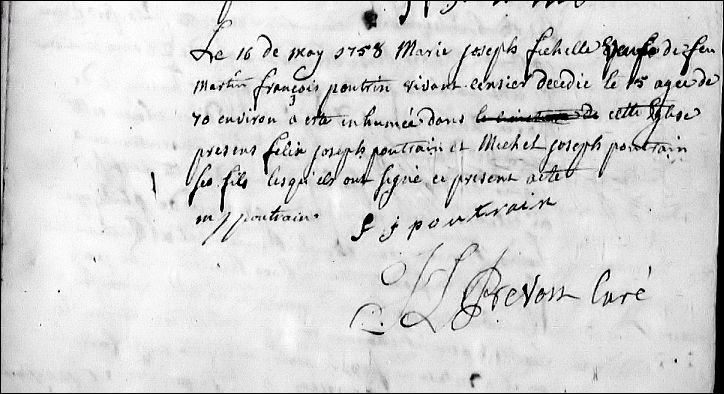 Le 16 de may 1758 Marie Joseph fichelle veufe de feu
martin françois poutrin vivant censier decedée le 15 agee de
70 environ a este inhumée dans de cette Eglise
present felix joseph poutrain et Michel joseph poutrain
ses fils lesquels ont signé ce present acte
m j poutrain
f j poutrain
Prevost Curé